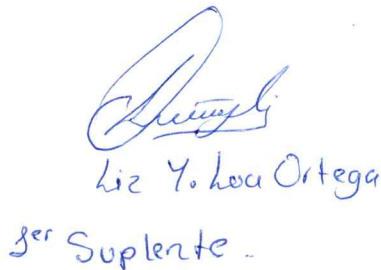 Liz Y. Loa Ortega
1er Suplente.